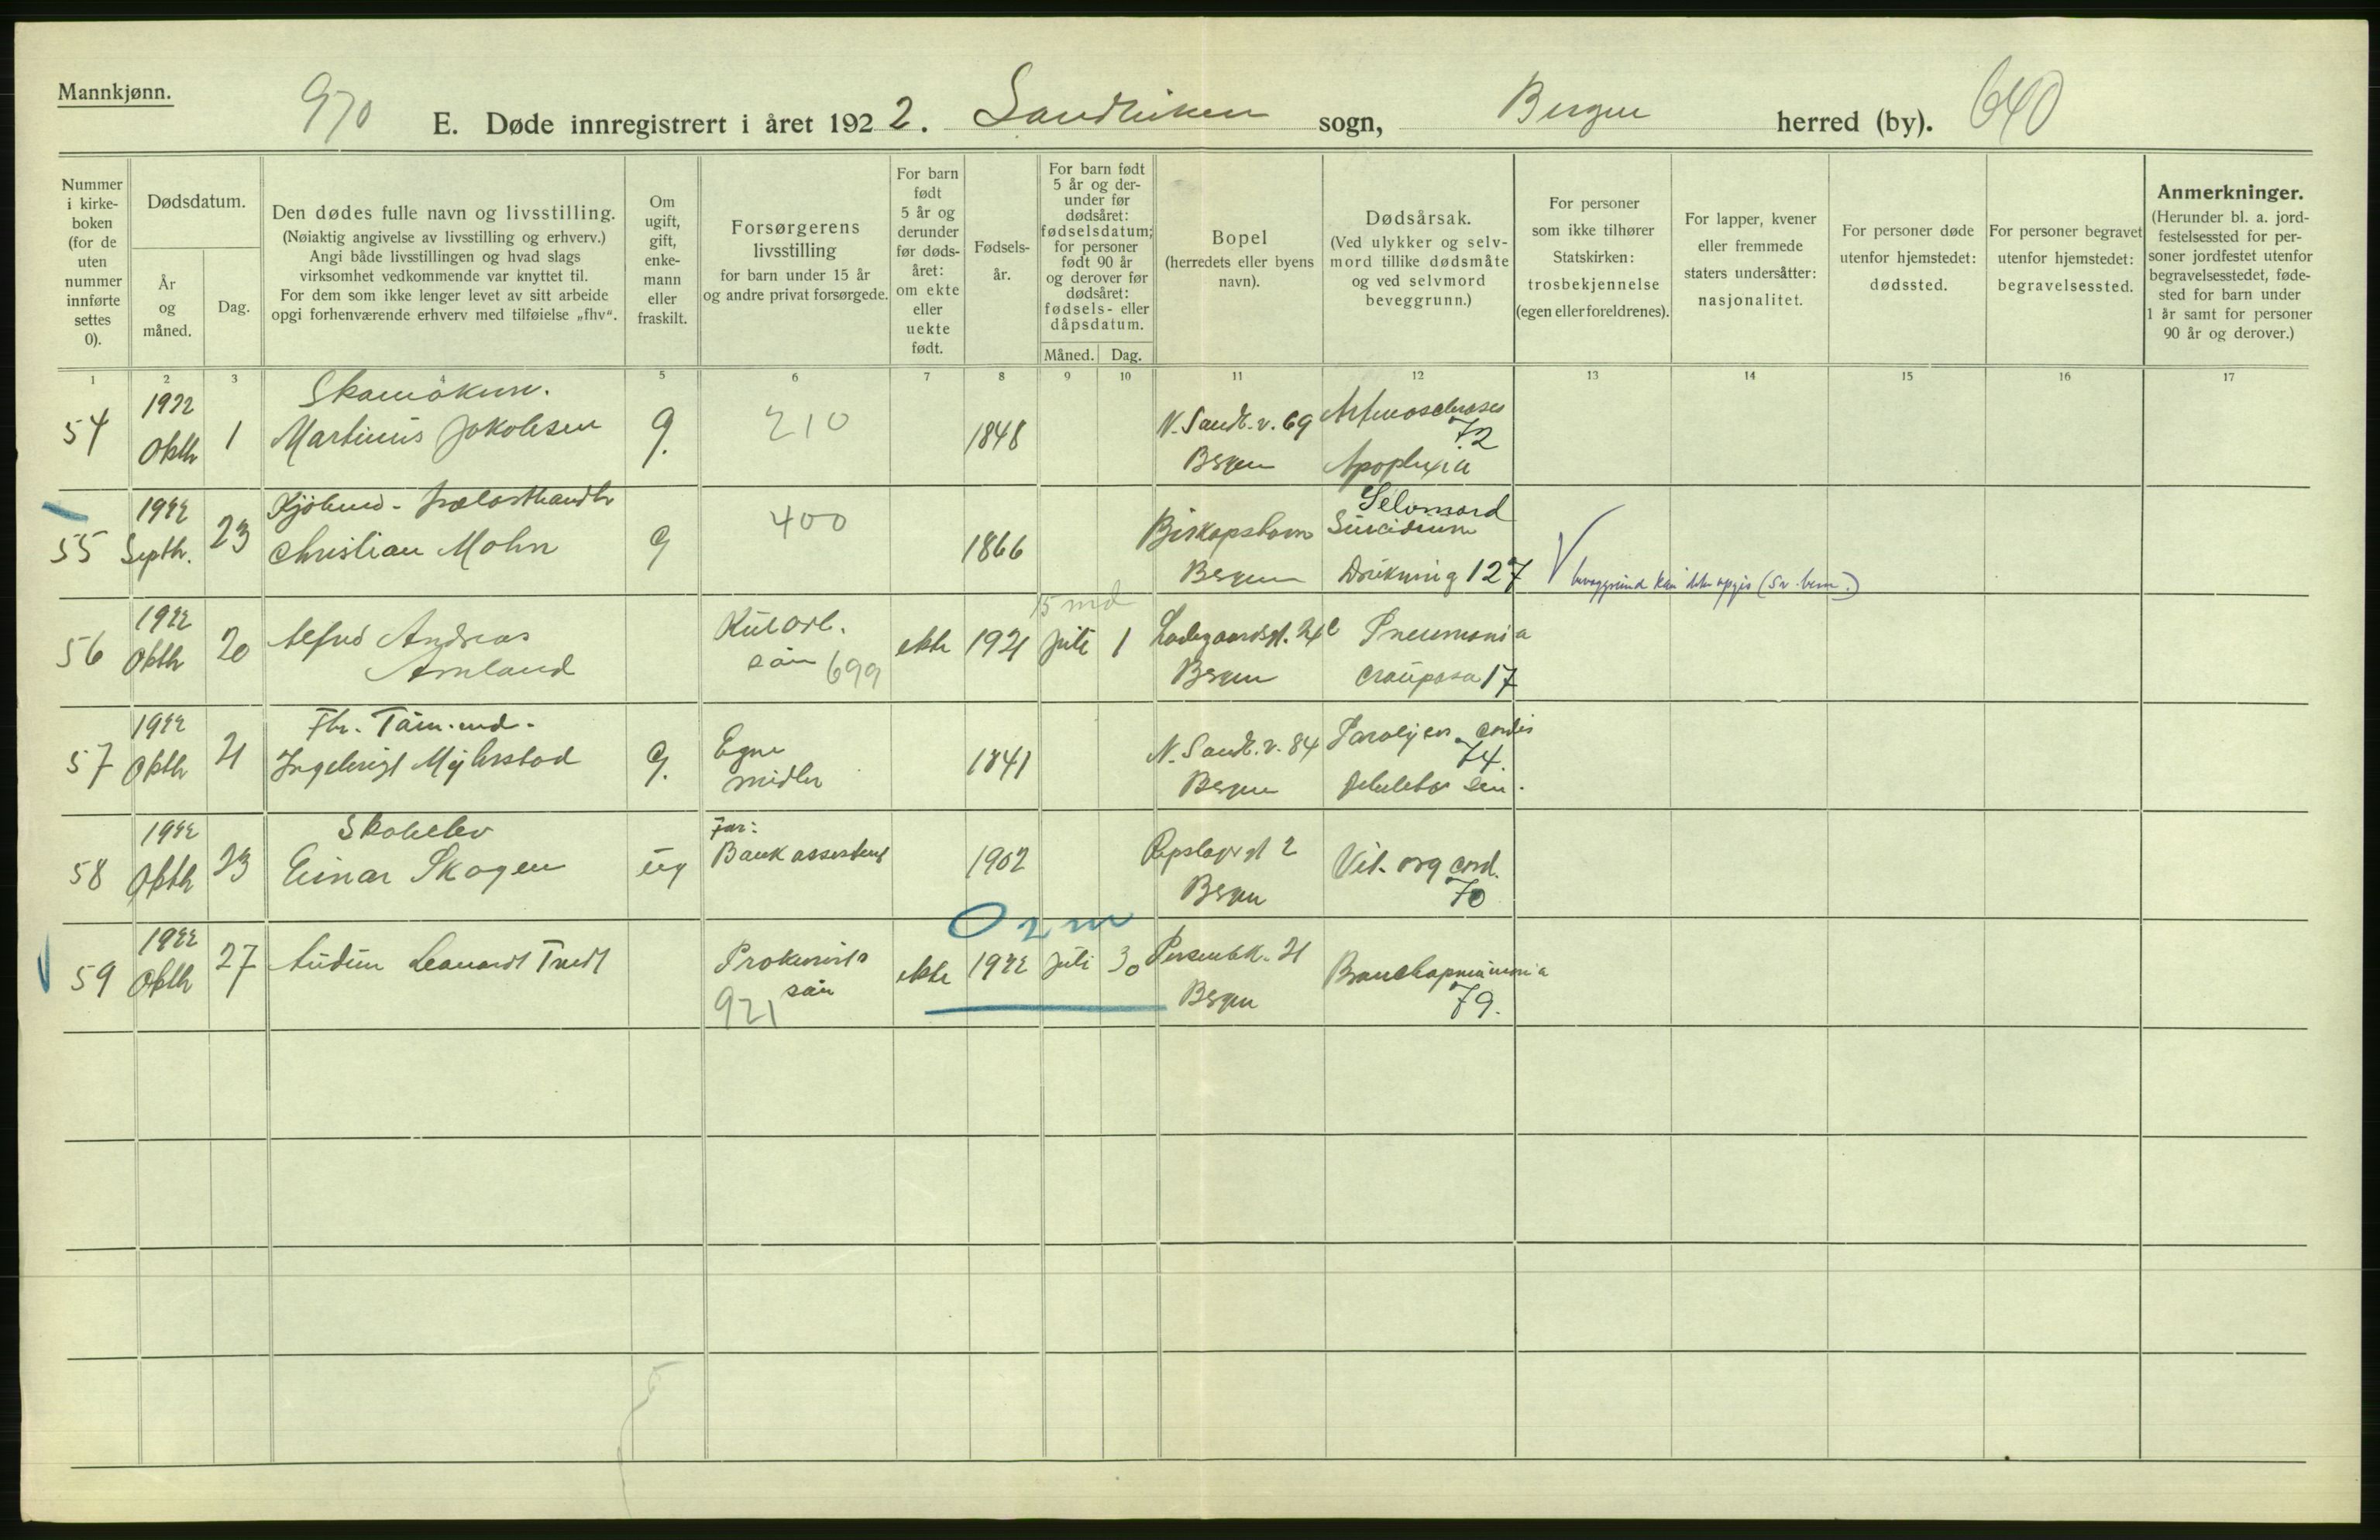 Mannkjønn.
970
E. Døde innregistrert i året 1922. Sandviken sogn, Bergen herred (by). 640
Nummer i kirke-boken (for de uten nummer innførte settes 0).
Dødsdatum.
År og måned.
Dag.
Den dødes fulle navn og livsstilling.
(Nøiaktig angivelse av livsstilling og erhverv.)
Angi både livsstillingen og hvad slags
virksomhet vedkommende var knyttet til.
For dem som ikke lenger levet av sitt arbeide
opgi forhenværende erhverv med tilføielse „fhv“.
Om ugift, gift, enke-mann eller fraskilt.
Forsørgerens livsstilling
for barn under 15 år
og andre privat forsørgede.
For barn født 5 år og derunder før døds-året: om ekte eller uekte født.
Fødsels-år.
For barn født 5 år og der-under før dødsåret: fødselsdatum; for personer født 90 år og derover før dødsåret: fødsels- eller dåpsdatum.
Måned. Dag.
Bopel
(herredets eller byens navn).
Dødsårsak.
(Ved ulykker og selv-mord tillike dødsmåte og ved selvmord beveggrunn.)
For personer som ikke tilhører Statskirken: trosbekjennelse (egen eller foreldrenes).
For lapper, kvener eller fremmede staters undersåtter: nasjonalitet.
For personer døde utenfor hjemstedet: dødssted.
For personer begravet utenfor hjemstedet: begravelsessted.
Anmerkninger.
(Herunder bl. a. jord-festelsessted for per-soner jordfestet utenfor begravelsesstedet, føde-sted for barn under 1 år samt for personer 90 år og derover.)
1 2 3 5 6 7 8 9 10 11 12 13 14 15 16 17
Skomakerm.
54 1922 Oktb 1 Martinus Jakobsen g. 210 1848 N. Sandv. v. 69 Bergen
72
Apoplexia
Kjøbmd - trælasthandlr
55 1922 Septb. 23 Christian Mohn g 400 1866 Biskopshavn Bergen
Selvmord
Suicidium
Drukning 127
beveggrund kan ikke opgis
15 md
56 1922 Oktb 20 Alfred Andreas Arnland
søn 699 ekte 1921 juli 1 Ladegaardsgt. Bergen
Pneumonia
crouposa 17
Fhv. Tøm.md.
57 1922 Oktb 21 Ingebrigt g. Egne midler 1841 N. Sandv. v. 84 Bergen
Paralysis cordis
74.
Debilitas sen.
Skoleelev
58 1922 Oktb 23 Einar Skogen ug
Far:
Bankassistent 1902 Repslagergt 2 Bergen
Vit. org cord.
70
0 2 m
59 1922 Oktb 27 Audun Leonard Tvedt Prokurists søn
921
ekte 1922 juli 30 21 Bergen
Bronchopneumonia
79.